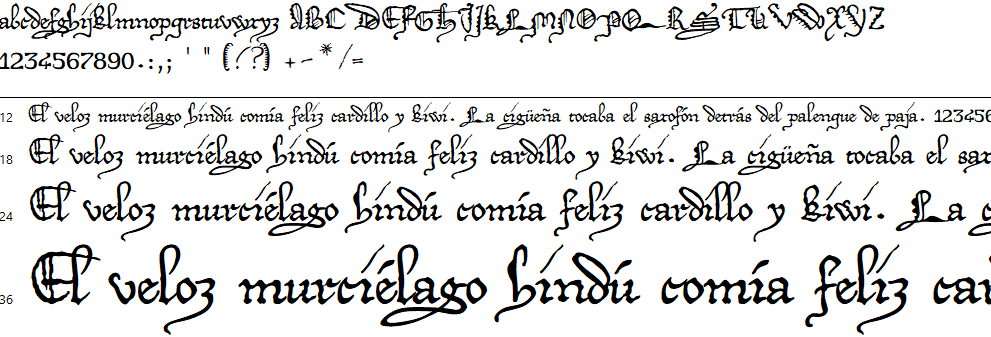 abcdefghijklmnopqrstuvwxyz ABCDEFGHIJKLMNOPQRSTUVWXYZ
1234567890.:,; ' " (!?) +-*/=
12 El veloz murciélago hindú comía feliz cardillo y kiwi. La cigüeña tocaba el saxofón detrás del palenque de paja. 123456
18 El veloz murciélago hindú comía feliz cardillo y kiwi. La cigüeña tocaba el sax
24 El veloz murciélago hindú comía feliz cardillo y kiwi. La c
36 El veloz murciélago hindú comía feliz car